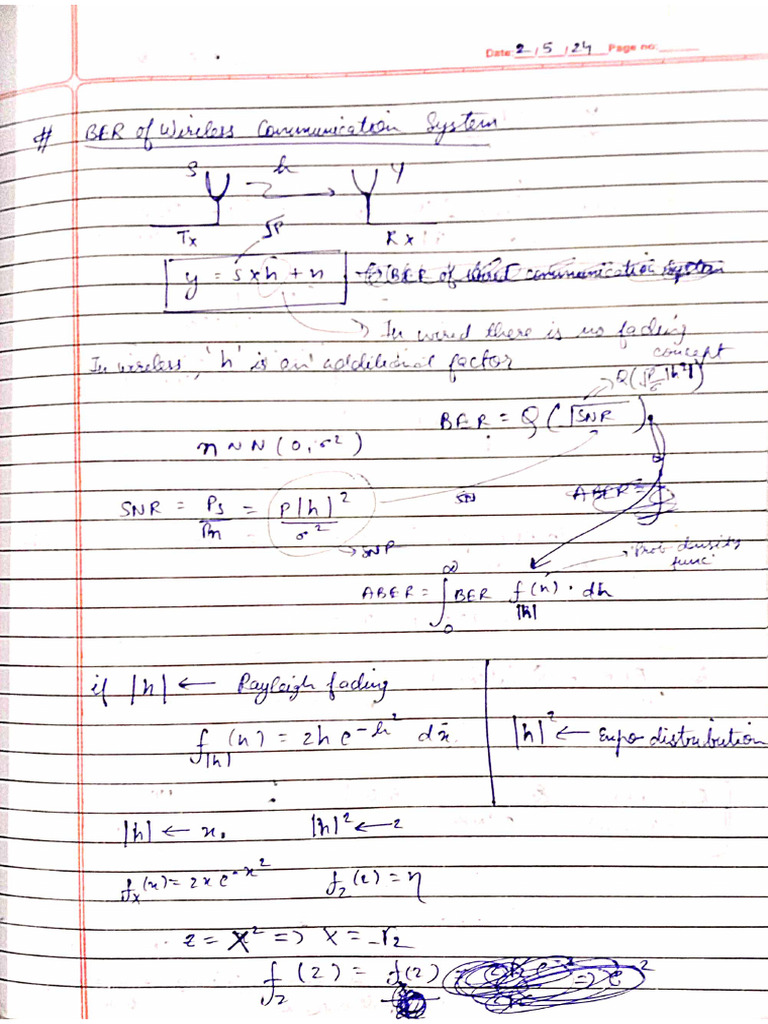 Date: 2/5/24 Page no:
# BER of Wireless Communication System
S h y
Tx √P Rx
y = s x h + n BER of communication system
→ In wired there is no fading concept
In wireless, 'h' is an additional factor
Q(√P/σ |h²|)
BER = Q(√SNR)
n ~ N(0, σ²)
SNR = Ps/Pn = P|h|²/σ² SN ABER =
→ SNR
→ Prob density func
ABER = ∫₀^∞ BER f|h|(h) · dh
if |h| ← Rayleigh fading
f|h|(h) = 2h e^-h² dx |h|² ← Expo distribution
|h| ← x. |h|² ← z
fx(x) = 2x e^-x² fz(z) = η
z = X² => X = √z
fz(z) = f(z)